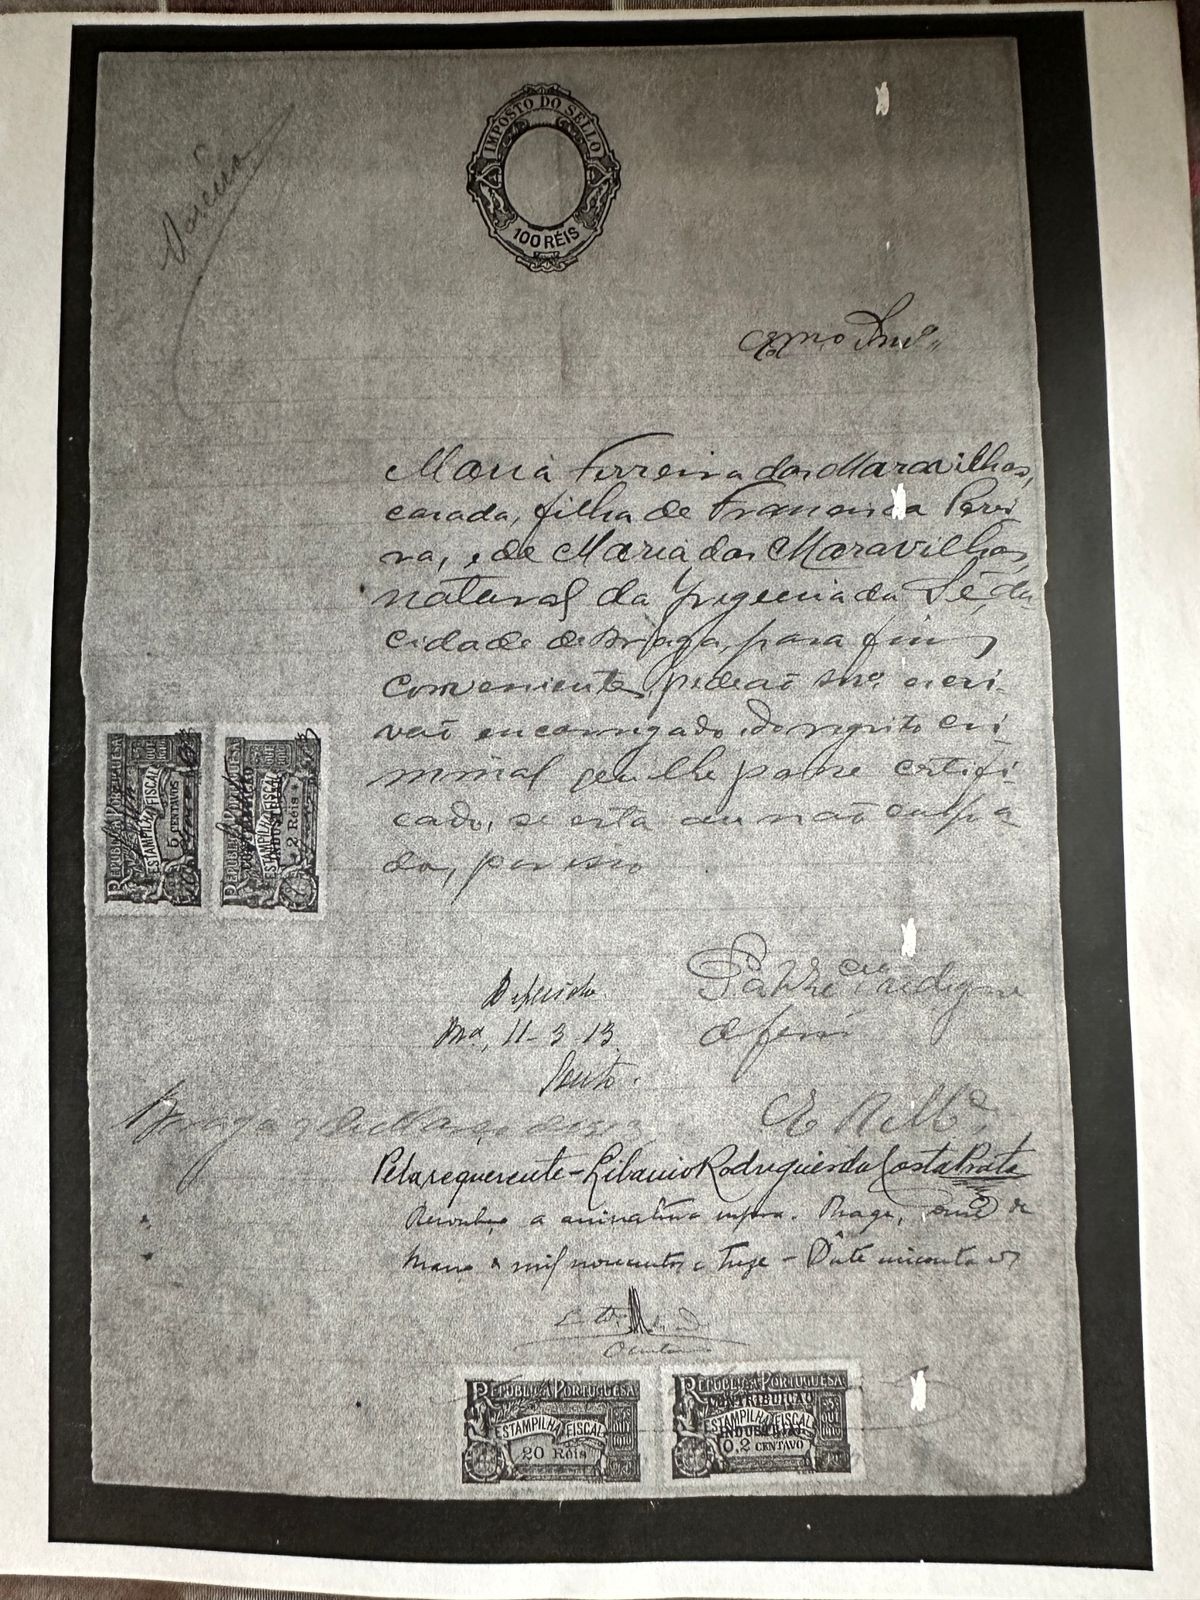 IMPOSTO DO SELLO
100 RÉIS
Exmo Snr
Maria Ferreira das Maravilhas,
casada, filha de Francisca Perei
ra, e de Maria das Maravilhas,
natural da freguezia da Sé, da
cidade de Braga, para fins
convenientes, pede ao Snr. escri-
vão encarregado do registo cri-
minal que lhe passe certifi-
cado, se está ou não culpa
da, por isso
P. a V. Excia se digne
deferir
Deferido.
Bra, 11-3-13.
E. R. Mce
Braga 9 de Março de 1913
Pela requerente - Libanio Rodrigues da Costa Prata
Reconheço a assinatura supra. Braga, onze de
Março de mil novecentos e treze -
REPUBLICA PORTUGUESA
ESTAMPILHA FISCAL
5 CENTAVOS
REPUBLICA PORTUGUESA
CONTRIBUIÇÃO
ESTAMPILHA FISCAL
INDUSTRIAL
2 Réis
REPUBLICA PORTUGUESA
ESTAMPILHA FISCAL
20 Réis
5 OUT 1910
REPUBLICA PORTUGUESA
CONTRIBUIÇÃO
ESTAMPILHA FISCAL
INDUSTRIAL
0,2 CENTAVO
5 OUT 1910